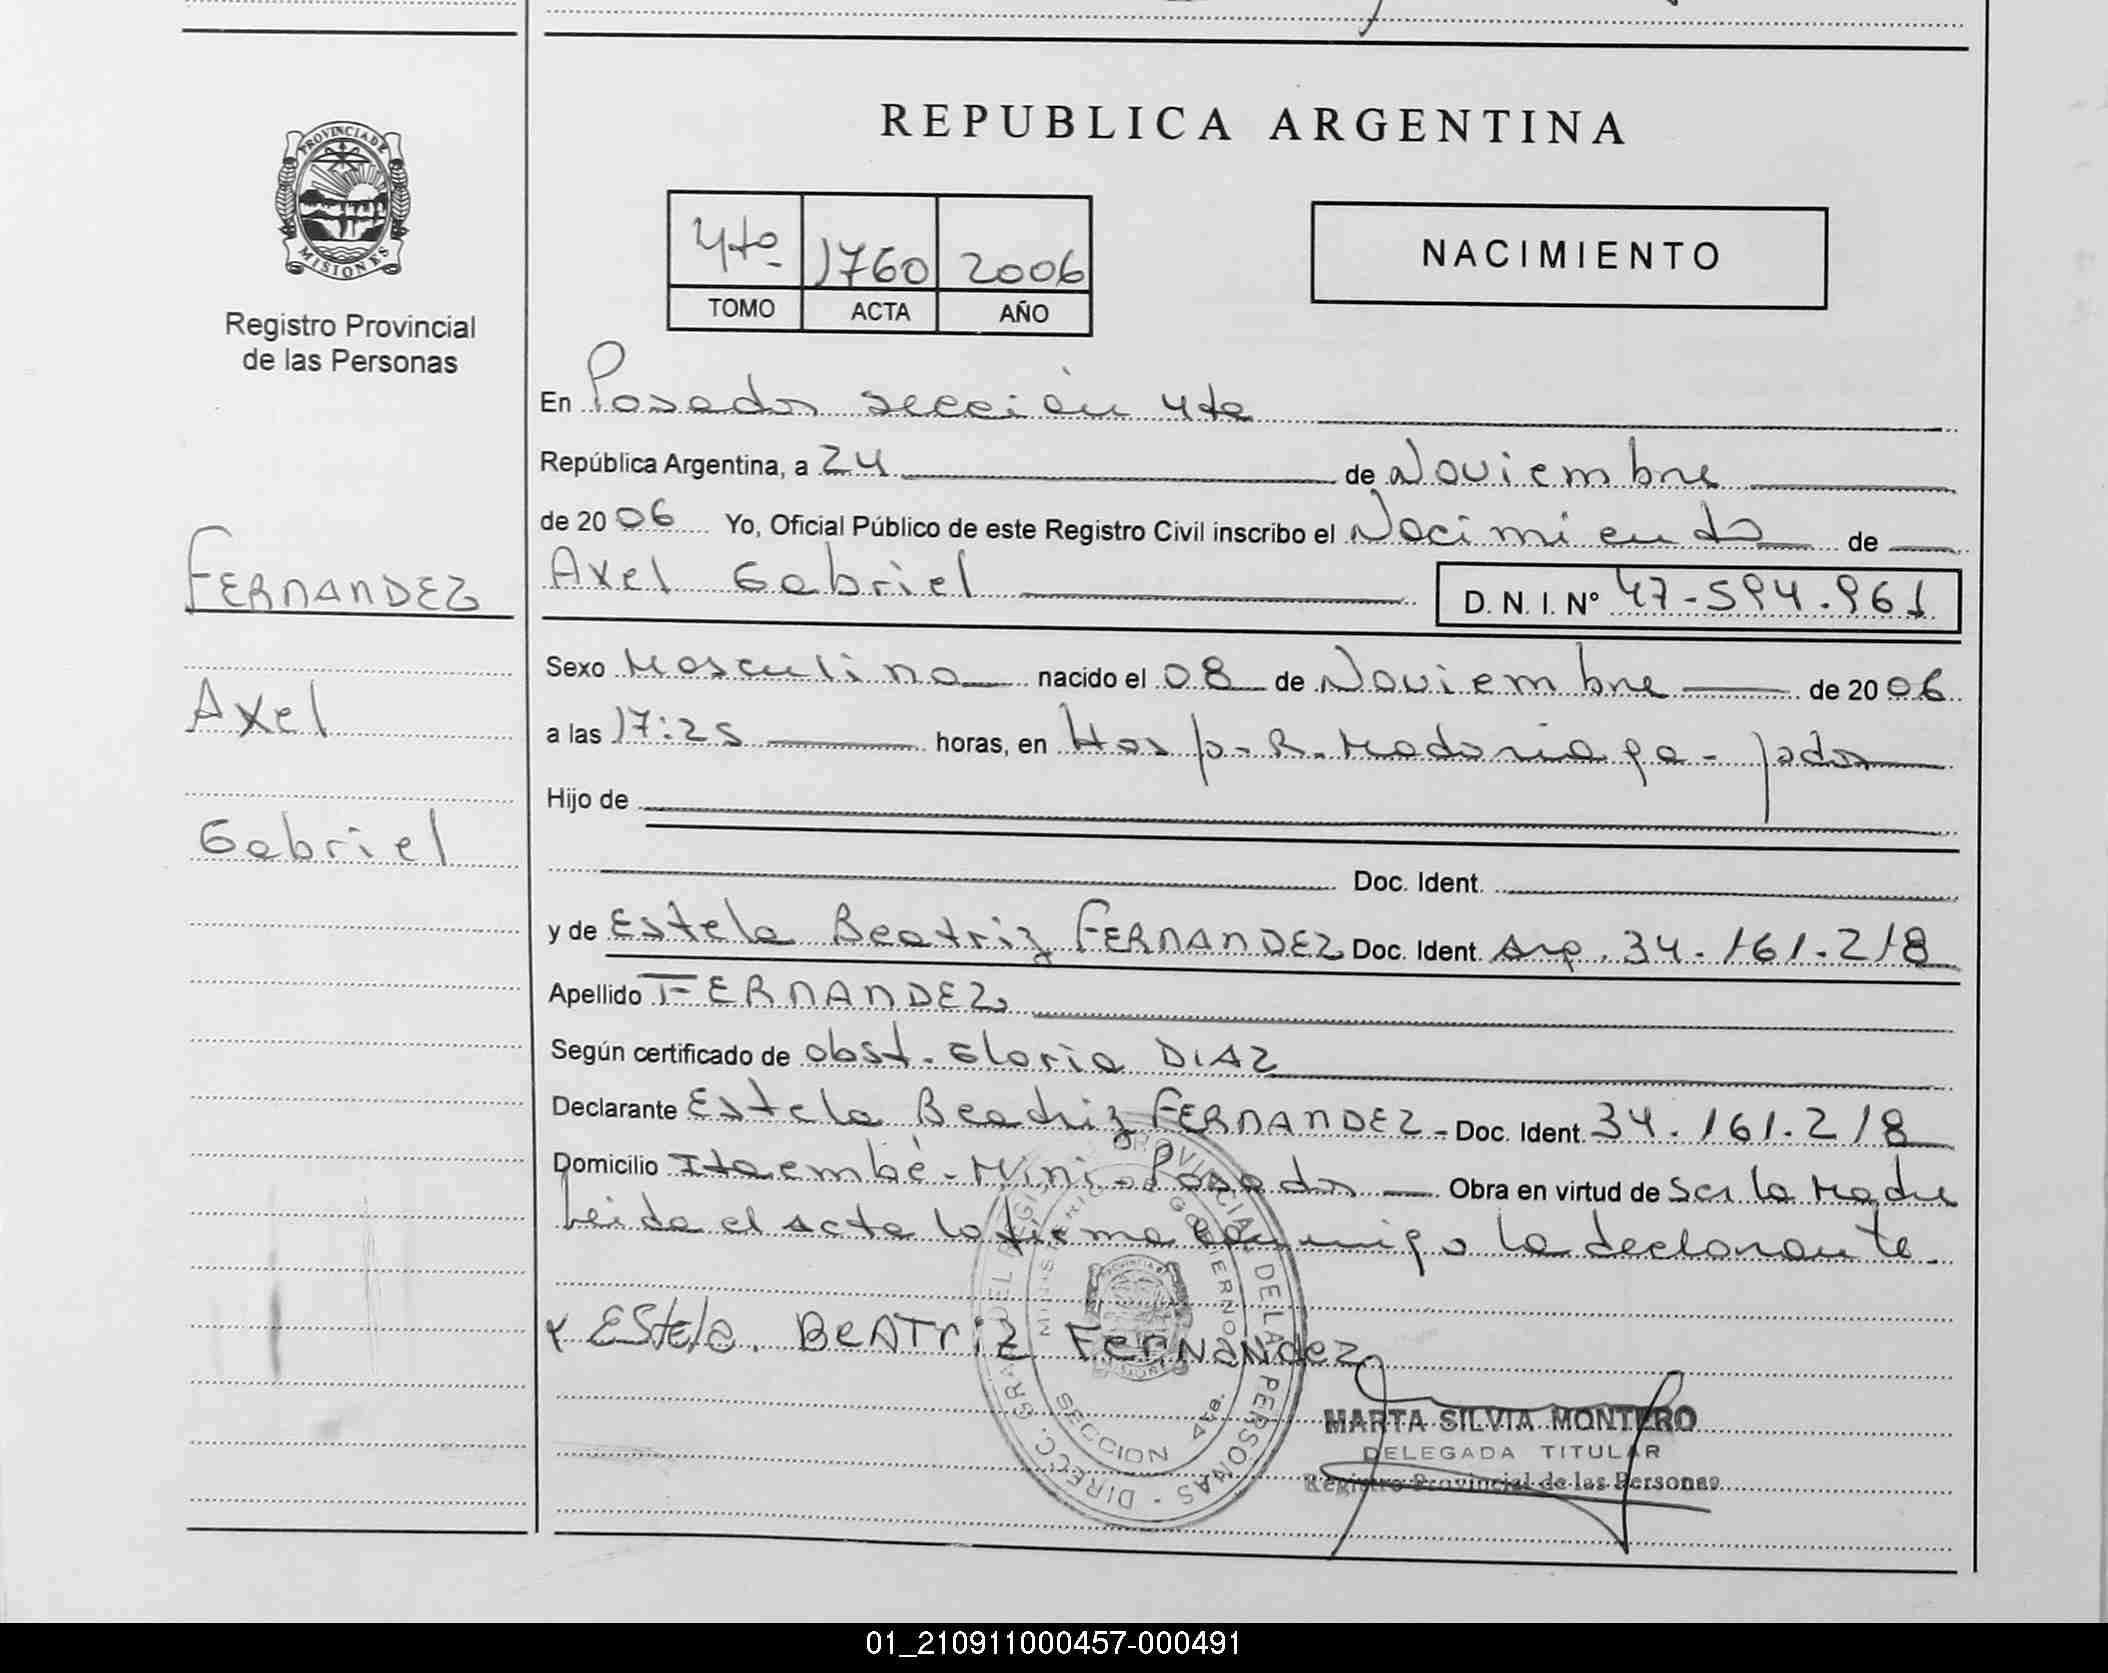 PROVINCIA DE
MISIONES
Registro Provincial
de las Personas
FERNANDEZ
Axel
Gabriel
REPUBLICA ARGENTINA
4to 1760 2006
TOMO ACTA AÑO
NACIMIENTO
En Posadas sección 4ta
República Argentina, a 24 de Noviembre
de 2006 Yo, Oficial Público de este Registro Civil inscribo el Nacimiento de
Axel Gabriel D. N. I. Nº 47-594.961
Sexo Masculino nacido el 08 de Noviembre de 2006
a las 17:25 horas, en Hosp. R. Madariaga - pdas
Hijo de
Doc. Ident.
y de Estela Beatriz FERNANDEZ Doc. Ident. Arg. 34.161.218
Apellido FERNANDEZ
Según certificado de obst. Gloria DIAZ
Declarante Estela Beatriz FERNANDEZ - Doc. Ident. 34.161.218
Domicilio Itaembé - Miní - Posadas Obra en virtud de ser la Madre
Leida el acta la firma conmigo la declarante
x EStela. BEATriZ FerNandez
DIRECC. GRAL. DEL REGISTRO PROVINCIAL DE LAS PERSONAS -
MINISTERIO DE GOBIERNO
SECCION 4ta.
MARTA SILVIA MONTERO
DELEGADA TITULAR
Registro Provincial de las Personas
01_210911000457-000491